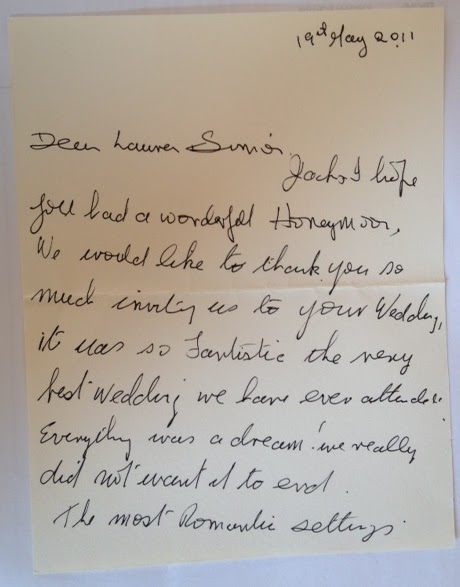 19th May 2011
Dear Lauren Simon,
Jack & I hope
you had a wonderful Honeymoon,
We would like to thank you so
much inviting us to your Wedding,
it was so Fantistic the very
best Wedding we have ever attended.
Everything was a dream! we really
did not want it to end.
The most Romantic settings.